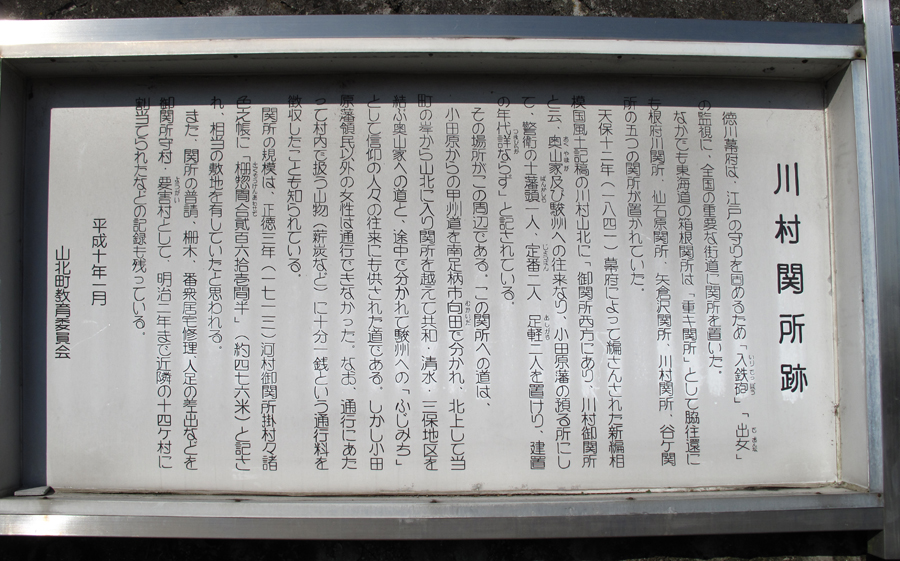 川村関所跡
徳川幕府は、江戸の守りを固めるため「入鉄砲」「出女」
の監視に、全国の重要な街道に関所を置いた。
なかでも東海道の箱根関所は「重キ関所」として脇往還に
も根府川関所・仙石原関所・矢倉沢関所・川村関所・谷ケ関
所の五つの関所が置かれていた。
天保十二年（一八四一）幕府によって編さんされた新編相
模国風土記稿の川村山北に「御関所西方にあり、川村御関所
と云、奥山家及び駿州への往来なり、小田原藩の預る所にし
て、警衛の士藩頭一人、定番二人　足軽二人を置けり、建置
の年代詳ならず」と記されている。
その場所がこの周辺である。この関所への道は、
小田原からの甲州道を南足柄市向田で分かれ、北上して当
町の岸から山北に入り関所を越えて共和・清水・三保地区を
結ぶ奥山家への道と、途中で分かれて駿州への「ふじみち」
として信仰の人々の往来にも供された道である。しかし小田
原藩領民以外の女性は通行できなかった。なお、通行にあた
って村内で扱う山物（薪炭など）に十分一銭という通行料を
徴収したことも知られている。
関所の規模は、正徳三年（一七一三）河村御関所掛村々諸
色之帳に「柵惣間合貳百六拾壱間半」（約四七六米）と記さ
れ、相当の敷地を有していたと思われる。
また、関所の普請、柵木、番衆居宅修理、人足の差出などを
御関所守村・要害村として、明治二年まで近隣の十四ケ村に
割当てられたなどの記録も残っている。
平成十年一月
山北町教育委員会